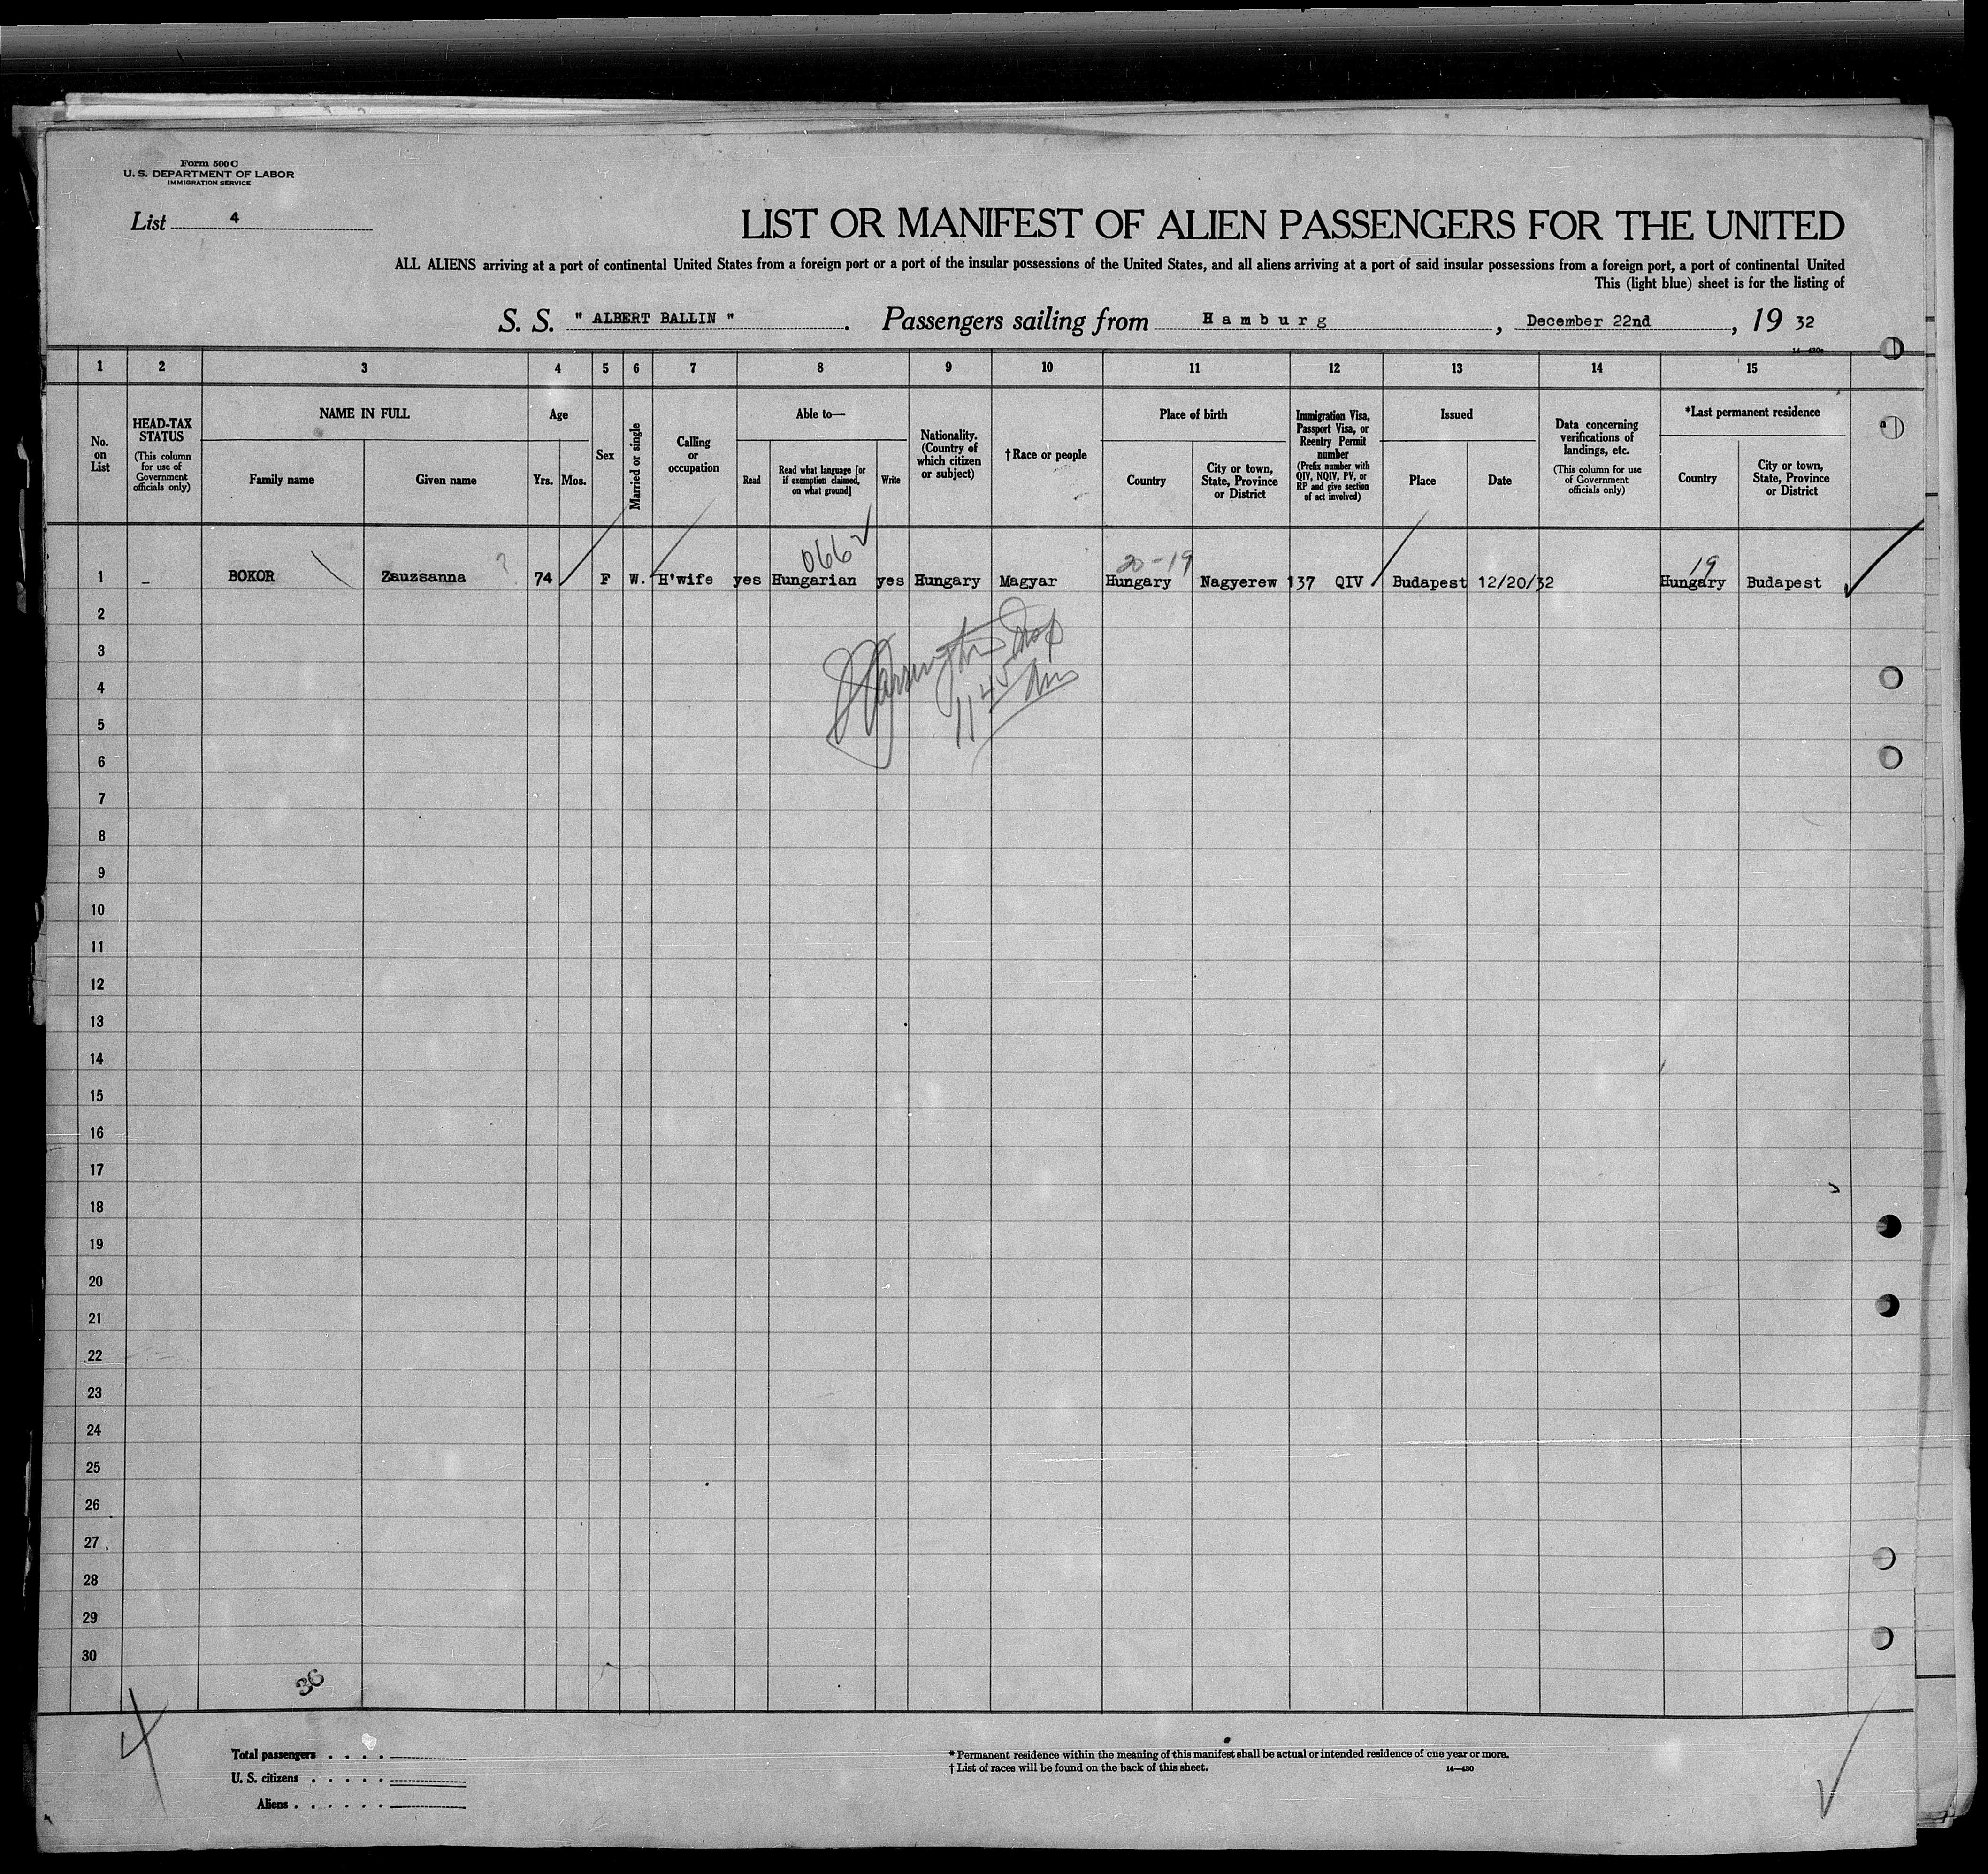 Form 500 C
U. S. DEPARTMENT OF LABOR
IMMIGRATION SERVICE
List 4
LIST OR MANIFEST OF ALIEN PASSENGERS FOR THE UNITED
ALL ALIENS arriving at a port of continental United States from a foreign port or a port of the insular possessions of the United States, and all aliens arriving at a port of said insular possessions from a foreign port, a port of continental United
This (light blue) sheet is for the listing of
S. S. " ALBERT BALLIN " . Passengers sailing from Hamburg , December 22nd , 19 32
1 2 3 4 5 6 7 8 9 10 11 12 13 14 15
No. on List
HEAD-TAX STATUS (This column for use of Government officials only)
NAME IN FULL
Family name
Given name
Age
Yrs. Mos.
Sex
Married or single
Calling or occupation
Able to—
Read
Read what language [or if exemption claimed, on what ground]
Write
Nationality. (Country of which citizen or subject)
†Race or people
Place of birth
Country
City or town, State, Province or District
Immigration Visa, Passport Visa, or Reentry Permit number (Prefix number with QIV, NQIV, PV, or RP and give section of act involved)
Issued
Place
Date
Data concerning verifications of landings, etc. (This column for use of Government officials only)
*Last permanent residence
Country
City or town, State, Province or District
066 20-19 19
1 - BOKOR Zauzsanna ? 74 F W. H'wife yes Hungarian yes Hungary Magyar Hungary Nagyerew 137 QIV Budapest 12/20/32 Hungary Budapest
2
3
4
5
6
7
8
9
10
11
12
13
14
15
16
17
18
19
20
21
22
23
24
25
26
27
28
29
30
36
4
Total passengers
U. S. citizens
Aliens
* Permanent residence within the meaning of this manifest shall be actual or intended residence of one year or more.
† List of races will be found on the back of this sheet.
14—430